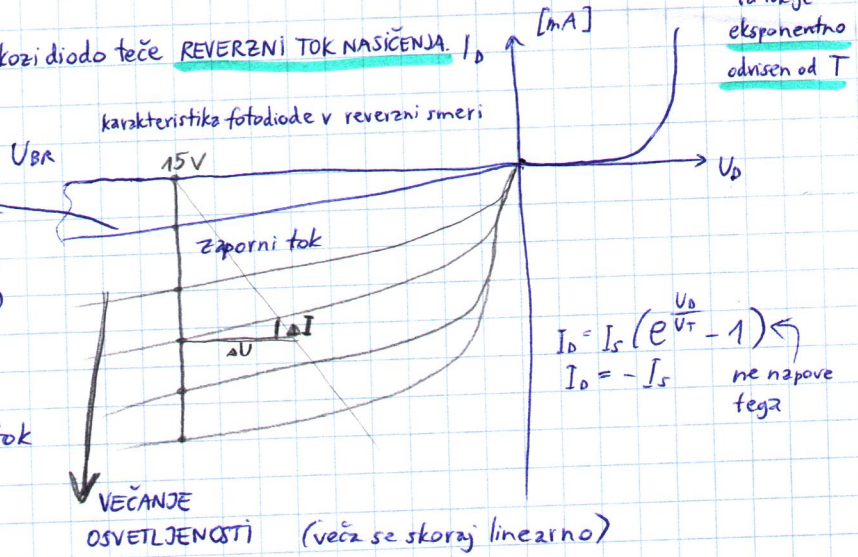 kozi diodo teče REVERZNI TOK NASIČENJA.
I_D [mA]
eksponentno
odvisen od T
karakteristika fotodiode v reverzni smeri
U_BR
15V
U_D
zaporni tok
ΔI
ΔU
I_D = I_S (e^(U_D/U_T) - 1)
I_D = - I_S
ne napove
tega
tok
VEČANJE
OSVETLJENOSTI (veča se skoraj linearno)